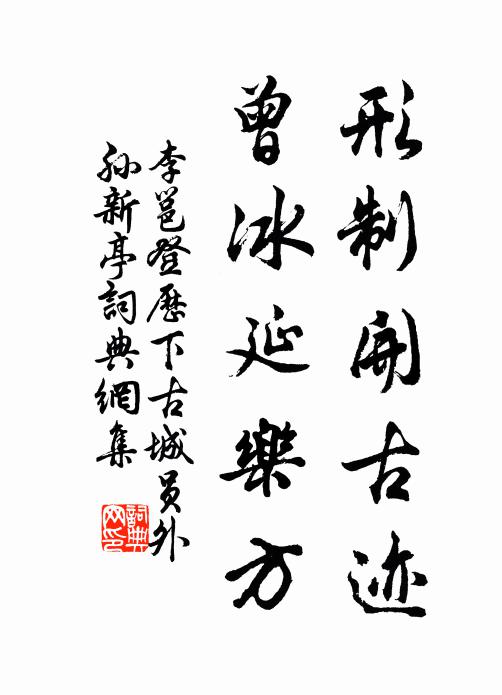 形制開古迹
曾冰延樂方
李邕登歷下古城員外
孫新亭詞典網集
詞典网印